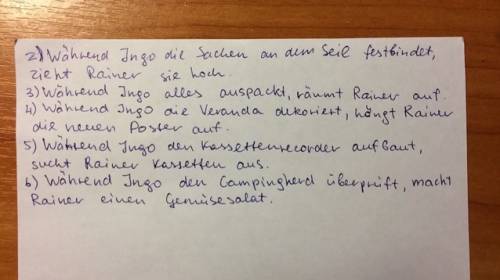 2) Während Ingo die Sachen an dem Seil festbindet,
zieht Rainer sie hoch.
3) Während Ingo alles auspackt, räumt Rainer auf.
4) Während Ingo die Veranda dekoriert, hängt Rainer
die neuen Poster auf.
5) Während Ingo den Kassettenrecorder aufbaut,
sucht Rainer Kassetten aus.
6) Während Ingo den Campingherd überprüft, macht
Rainer einen Gemüsesalat.